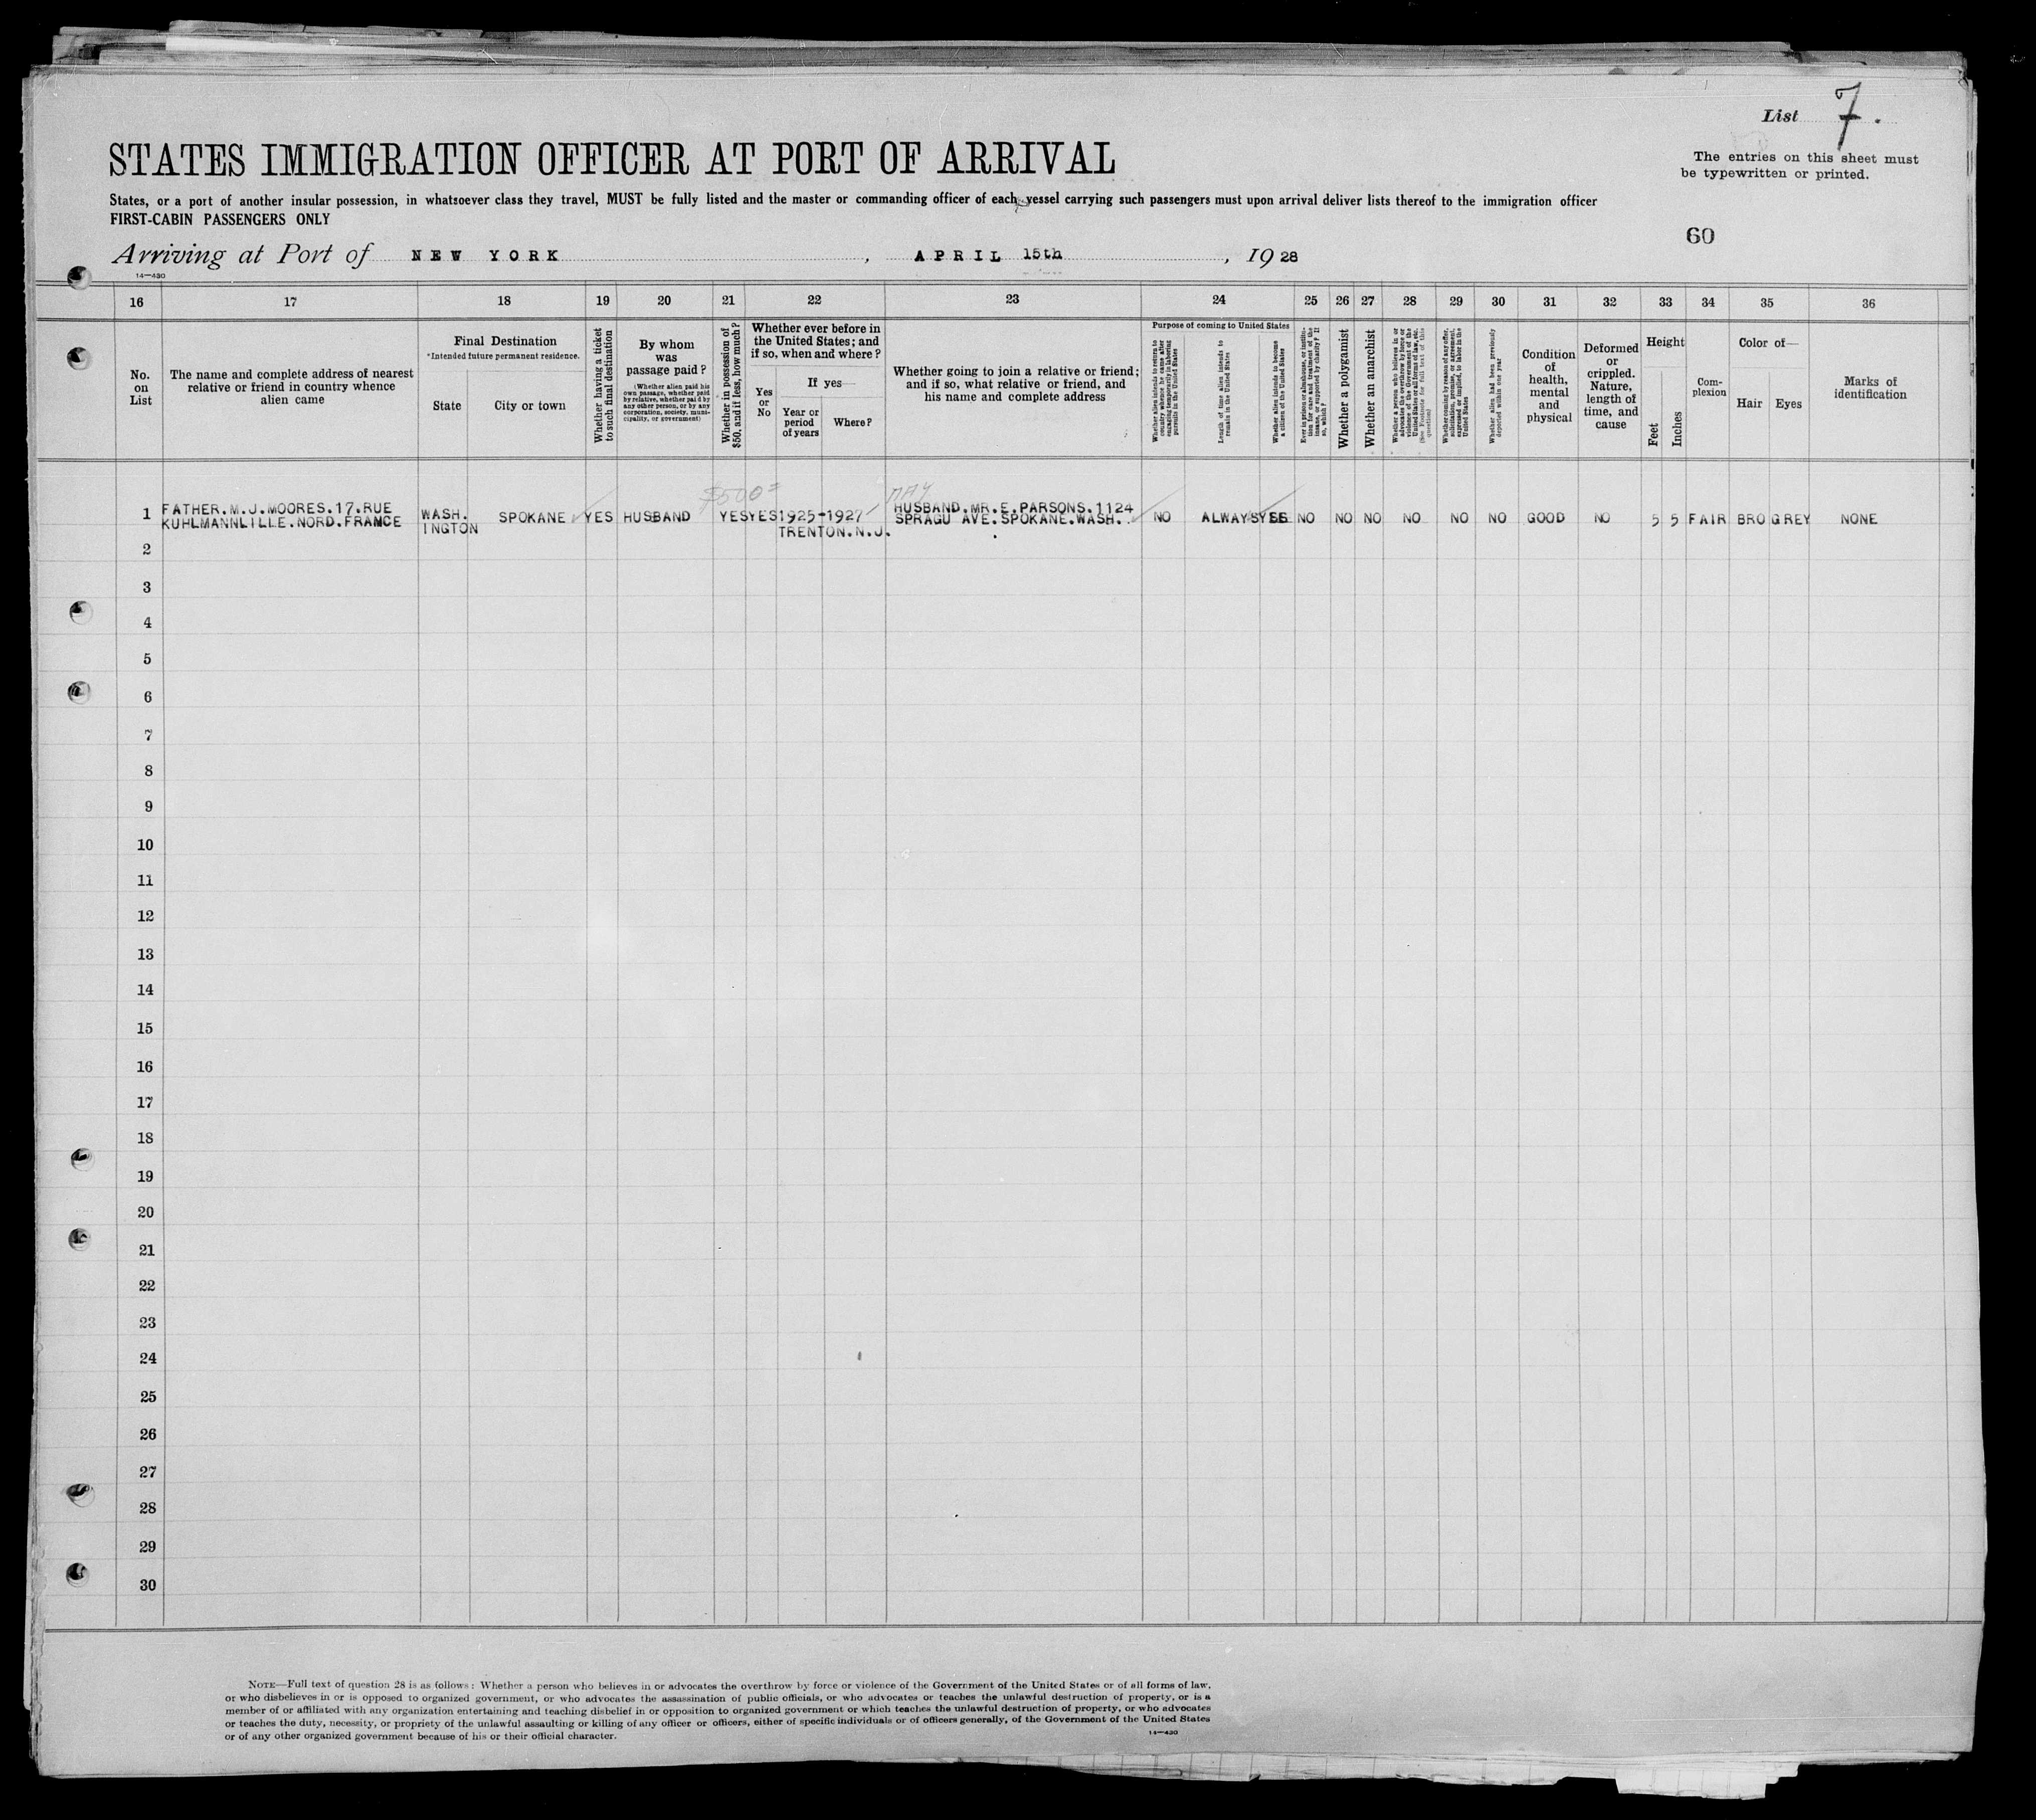 List 7.
STATES IMMIGRATION OFFICER AT PORT OF ARRIVAL
The entries on this sheet must
be typewritten or printed.
States, or a port of another insular possession, in whatsoever class they travel, MUST be fully listed and the master or commanding officer of each vessel carrying such passengers must upon arrival deliver lists thereof to the immigration officer
FIRST-CABIN PASSENGERS ONLY
60
Arriving at Port of NEW YORK, APRIL 15th, 1928
14—430
16 17 18 19 20 21 22 23 24 25 26 27 28 29 30 31 32 33 34 35 36
No.
on
List
The name and complete address of nearest
relative or friend in country whence
alien came
Final Destination
*Intended future permanent residence.
State
City or town
Whether having a ticket
to such final destination
By whom
was
passage paid?
(Whether alien paid his
own passage, whether paid
by relative, whether paid by
any other person, or by any
corporation, society, muni-
cipality, or government)
Whether in possession of
$50, and if less, how much?
Whether ever before in
the United States; and
if so, when and where?
Yes
or
No
If yes—
Year or
period
of years
Where?
Whether going to join a relative or friend;
and if so, what relative or friend, and
his name and complete address
Purpose of coming to United States
Whether alien intends to return to
country whence he came after
engaging temporarily in laboring
pursuits in the United States
Length of time alien intends to
remain in the United States
Whether alien intends to become
a citizen of the United States
Ever in prison or almshouse, or institu-
tion for care and treatment of the
insane, or supported by charity? If
so, which?
Whether a polygamist
Whether an anarchist
Whether a person who believes in or
advocates the overthrow by force or
violence of the Government of the
United States or all forms of law, etc.
(See Footnote for full text of this
question)
Whether coming by reason of any offer,
solicitation, promise, or agreement,
expressed or implied, to labor in the
United States
Whether alien had been previously
deported within one year
Condition
of
health,
mental
and
physical
Deformed
or
crippled.
Nature,
length of
time, and
cause
Height
Feet
Inches
Com-
plexion
Color of—
Hair
Eyes
Marks of
identification
$500= MAY
1 FATHER.M.J.MOORES.17.RUE
KUHLMANNLILLE.NORD.FRANCE
WASH.
INGTON
SPOKANE YES HUSBAND YES YES 1925-1927
TRENTON.N.J.
HUSBAND.MR.E.PARSONS.1124
SPRAGU AVE.SPOKANE.WASH.
NO ALWAYS YES NO NO NO NO NO NO GOOD NO 5 5 FAIR BRO GREY NONE
2
3
4
5
6
7
8
9
10
11
12
13
14
15
16
17
18
19
20
21
22
23
24
25
26
27
28
29
30
NOTE—Full text of question 28 is as follows: Whether a person who believes in or advocates the overthrow by force or violence of the Government of the United States or of all forms of law,
or who disbelieves in or is opposed to organized government, or who advocates the assassination of public officials, or who advocates or teaches the unlawful destruction of property, or is a
member of or affiliated with any organization entertaining and teaching disbelief in or opposition to organized government or which teaches the unlawful destruction of property, or who advocates
or teaches the duty, necessity, or propriety of the unlawful assaulting or killing of any officer or officers, either of specific individuals or of officers generally, of the Government of the United States
or of any other organized government because of his or their official character.
14—430